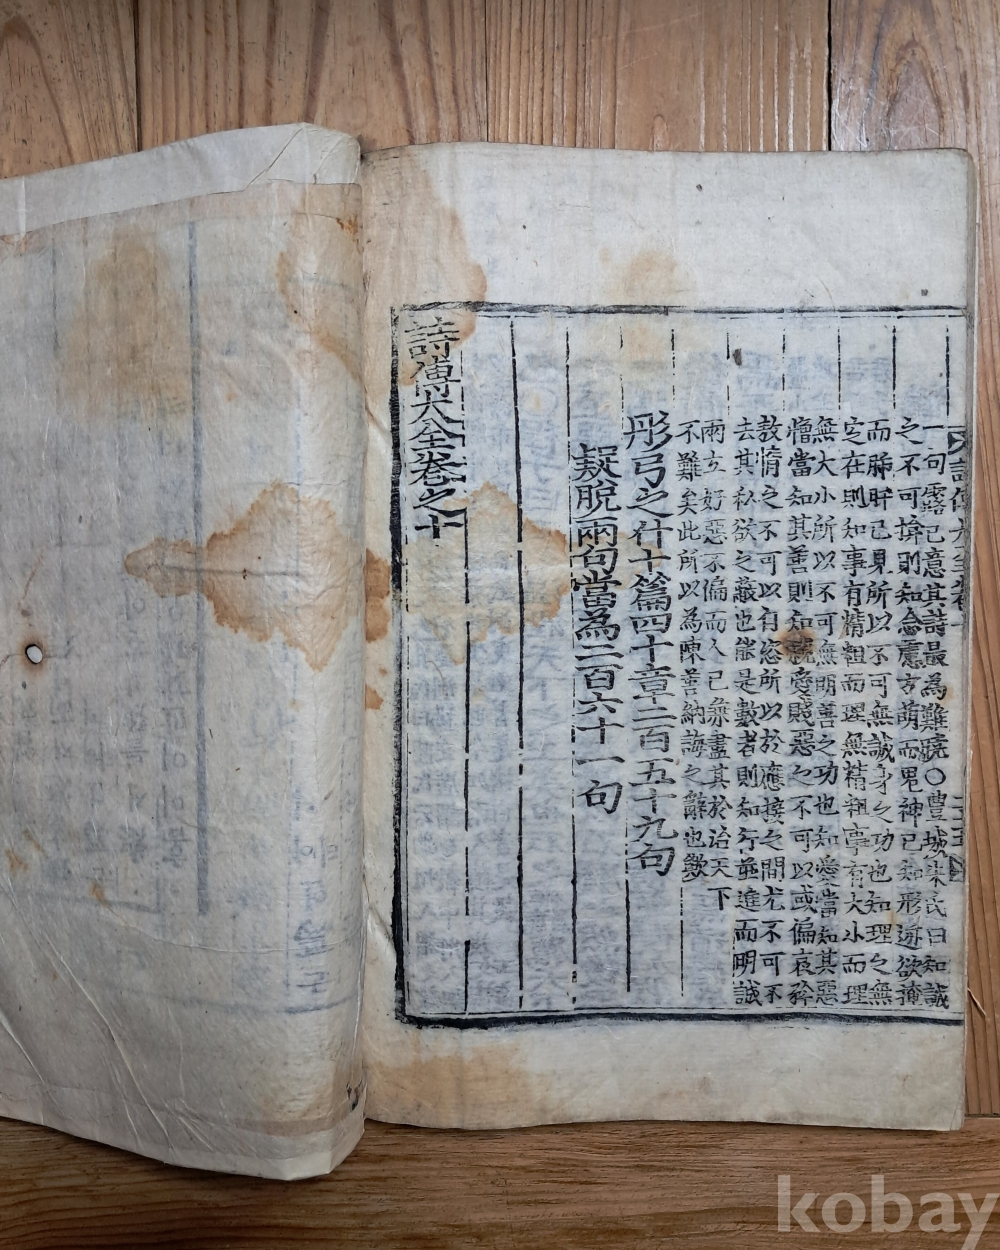 詩傳大全卷十
一句露己意其詩最為難曉○豊城朱氏曰知誠
之不可揜則知念慮方萌而鬼神已知形迹欲掩
而肺肝已見所以不可無誠身之功也知理之無
定在則知事有精粗而理無精粗事有大小而理
無大小所以不可無明善之功也知愛當知其惡
憎當知其善則知就愛賤惡之不可以或偏哀矜
敖惰之不可以有恣所以於應接之間尤不可不
去其私欲之蔽也能是數者則知行並進而明誠
兩立好惡不偏而人己兼盡其於治天下
不難矣此所以為陳善納誨之辭也歟
彤弓之什十篇四十章二百五十九句
疑脫兩句當為二百六十一句
詩傳大全卷之十
kobay